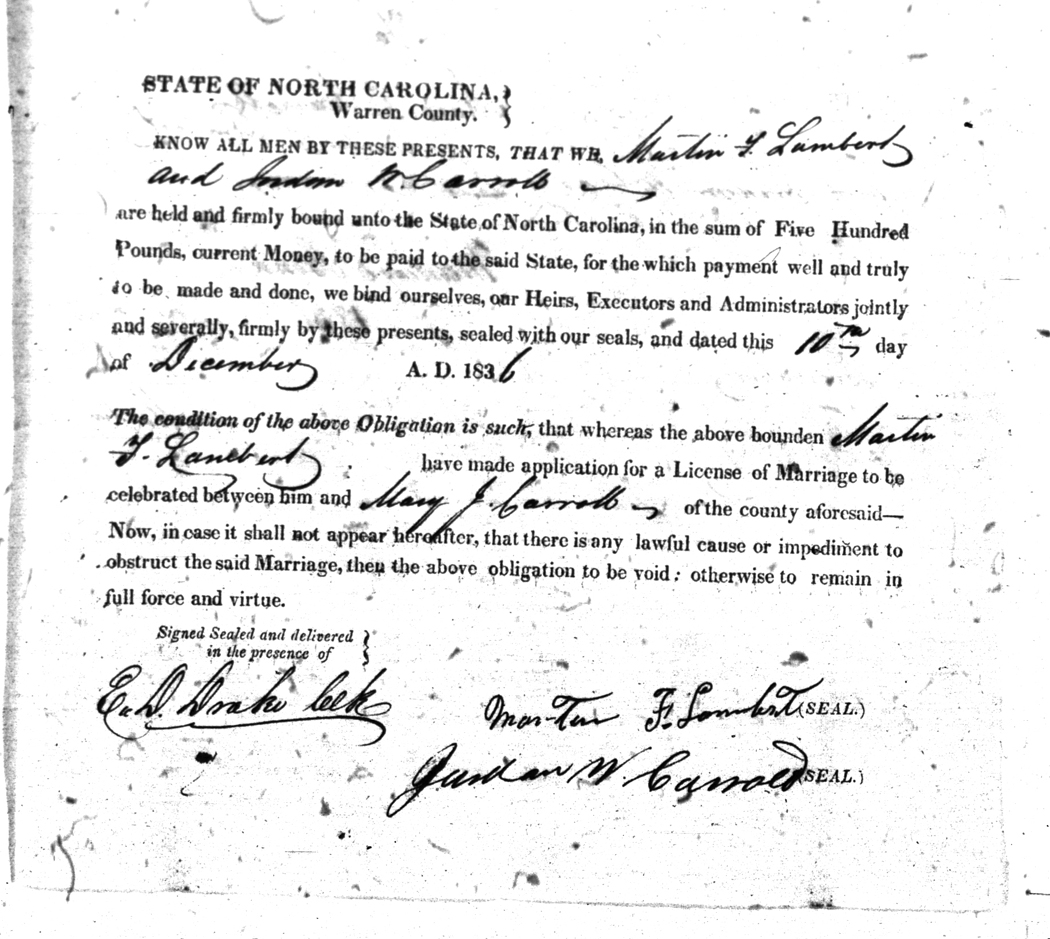 STATE OF NORTH CAROLINA,
Warren County.
KNOW ALL MEN BY THESE PRESENTS, THAT WE, Martin F. Lambert
and Jordan W. Carroll
are held and firmly bound unto the State of North Carolina, in the sum of Five Hundred
Pounds, current Money, to be paid to the said State, for the which payment well and truly
to be made and done, we bind ourselves, our Heirs, Executors and Administrators jointly
and severally, firmly by these presents, sealed with our seals, and dated this 10th day
of December A. D. 1836
The condition of the above Obligation is such, that whereas the above bounden Martin
F. Lambert have made application for a License of Marriage to be
celebrated between him and Mary J. Carroll of the county aforesaid—
Now, in case it shall not appear hereafter, that there is any lawful cause or impediment to
obstruct the said Marriage, then the above obligation to be void: otherwise to remain in
full force and virtue.
Signed Sealed and delivered
in the presence of
E. D. Drake Clk
Martin F. Lambert (SEAL.)
Jordan W. Carroll (SEAL.)